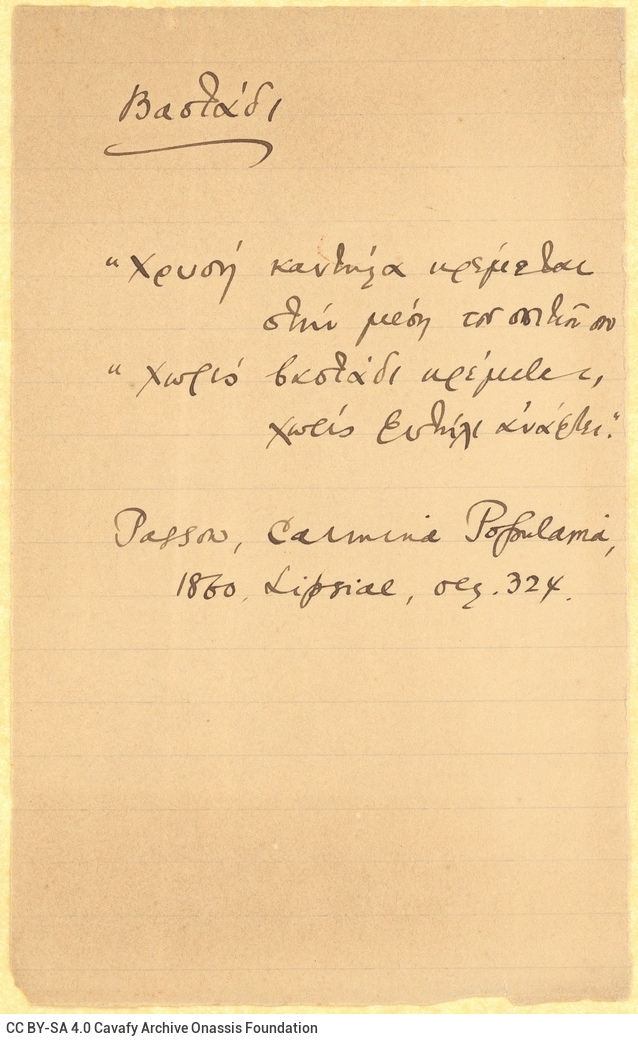 Βαστάδι
“Χρυσή καντήλα κρέμεται
στην μέση του σπιτιού σου
“Χωρίς βαστάδι κρέμεται,
χωρίς φυτήλι ανάφτει.”
Passow, Carmina Popularia,
1860, Lipsiae, σελ. 324.
CC BY-SA 4.0 Cavafy Archive Onassis Foundation